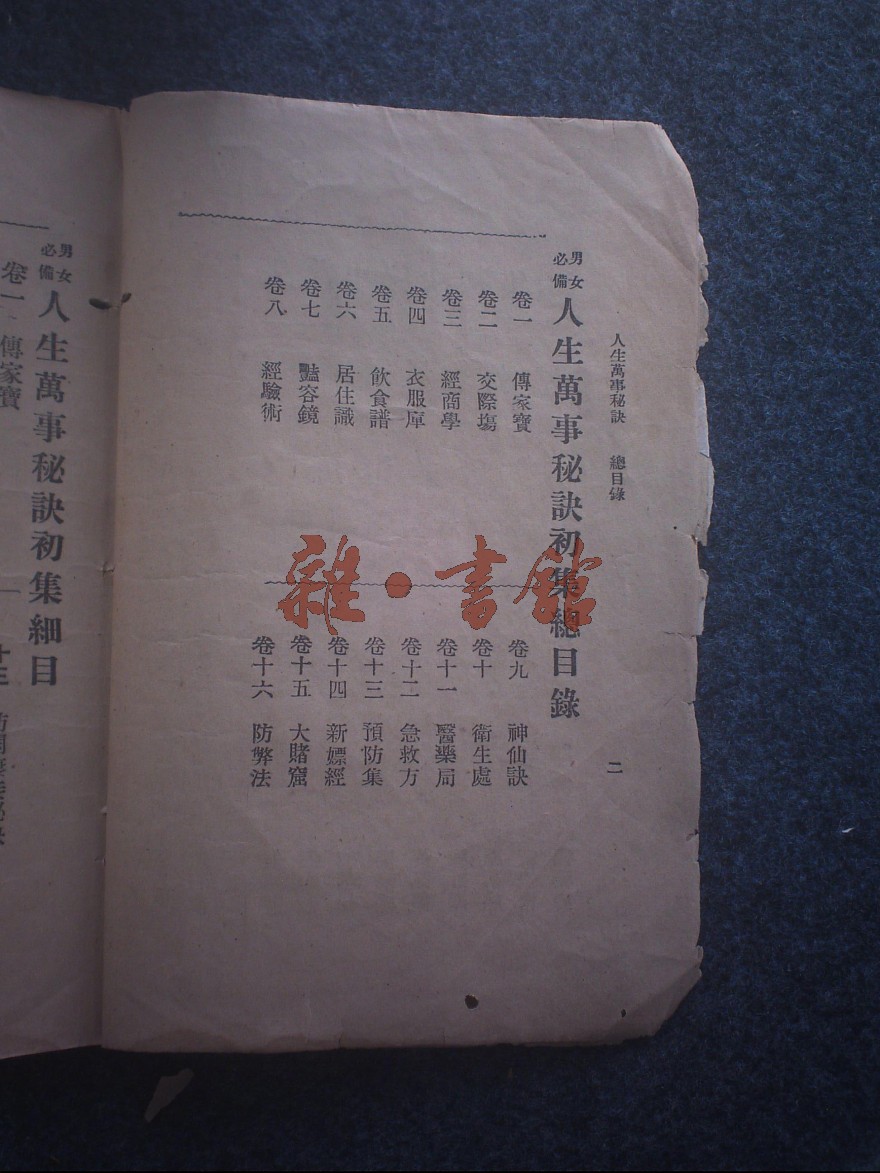 人生萬事秘訣 總目錄 二
男女必備 人生萬事秘訣初集總目錄
卷一 傳家寶
卷二 交際塲
卷三 經商學
卷四 衣服庫
卷五 飲食譜
卷六 居住識
卷七 豔容鏡
卷八 經驗術
卷九 神仙訣
卷十 衛生處
卷十一 醫藥局
卷十二 急救方
卷十三 預防集
卷十四 新嫖經
卷十五 大賭窟
卷十六 防弊法
男女必備 人生萬事秘訣初集細目
卷一 傳家寶
雜·書館